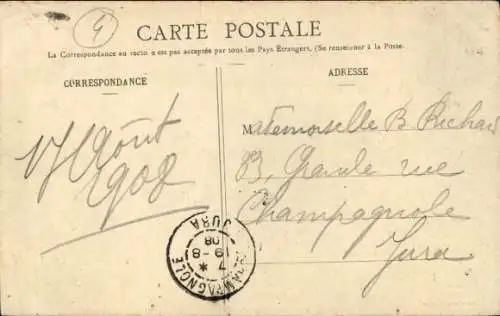 4
CARTE POSTALE
La Correspondance au recto n'est pas acceptée par tous les Pays Étrangers. (Se renseigner à la Poste
CORRESPONDANCE
ADRESSE
17 Août
1908
Mademoiselle B Richard
33, Grande rue
Champagnole
Jura
CHAMPAGNOLE
JURA
7 *
19-8
08